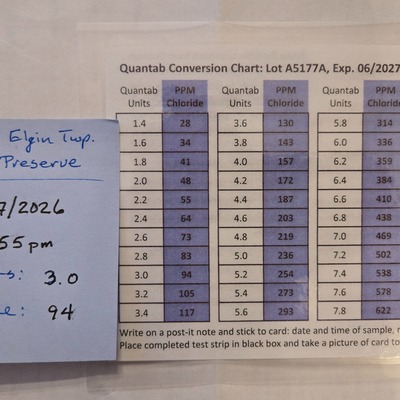 Elgin Twp.
Preserve
7/2026
55 pm
s: 3.0
e: 94
Quantab Conversion Chart: Lot A5177A, Exp. 06/2027
Quantab Units PPM Chloride Quantab Units PPM Chloride Quantab Units PPM Chloride
1.4 28 3.6 130 5.8 314
1.6 34 3.8 143 6.0 336
1.8 41 4.0 157 6.2 359
2.0 48 4.2 172 6.4 384
2.2 55 4.4 187 6.6 410
2.4 64 4.6 203 6.8 438
2.6 73 4.8 219 7.0 469
2.8 83 5.0 236 7.2 502
3.0 94 5.2 254 7.4 538
3.2 105 5.4 273 7.6 578
3.4 117 5.6 293 7.8 622
Write on a post-it note and stick to card: date and time of sample,
Place completed test strip in black box and take a picture of card to